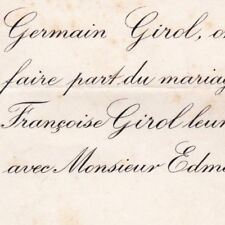 Germain Girol, o
faire part du mariag
Françoise Girol leur
avec Monsieur Edm